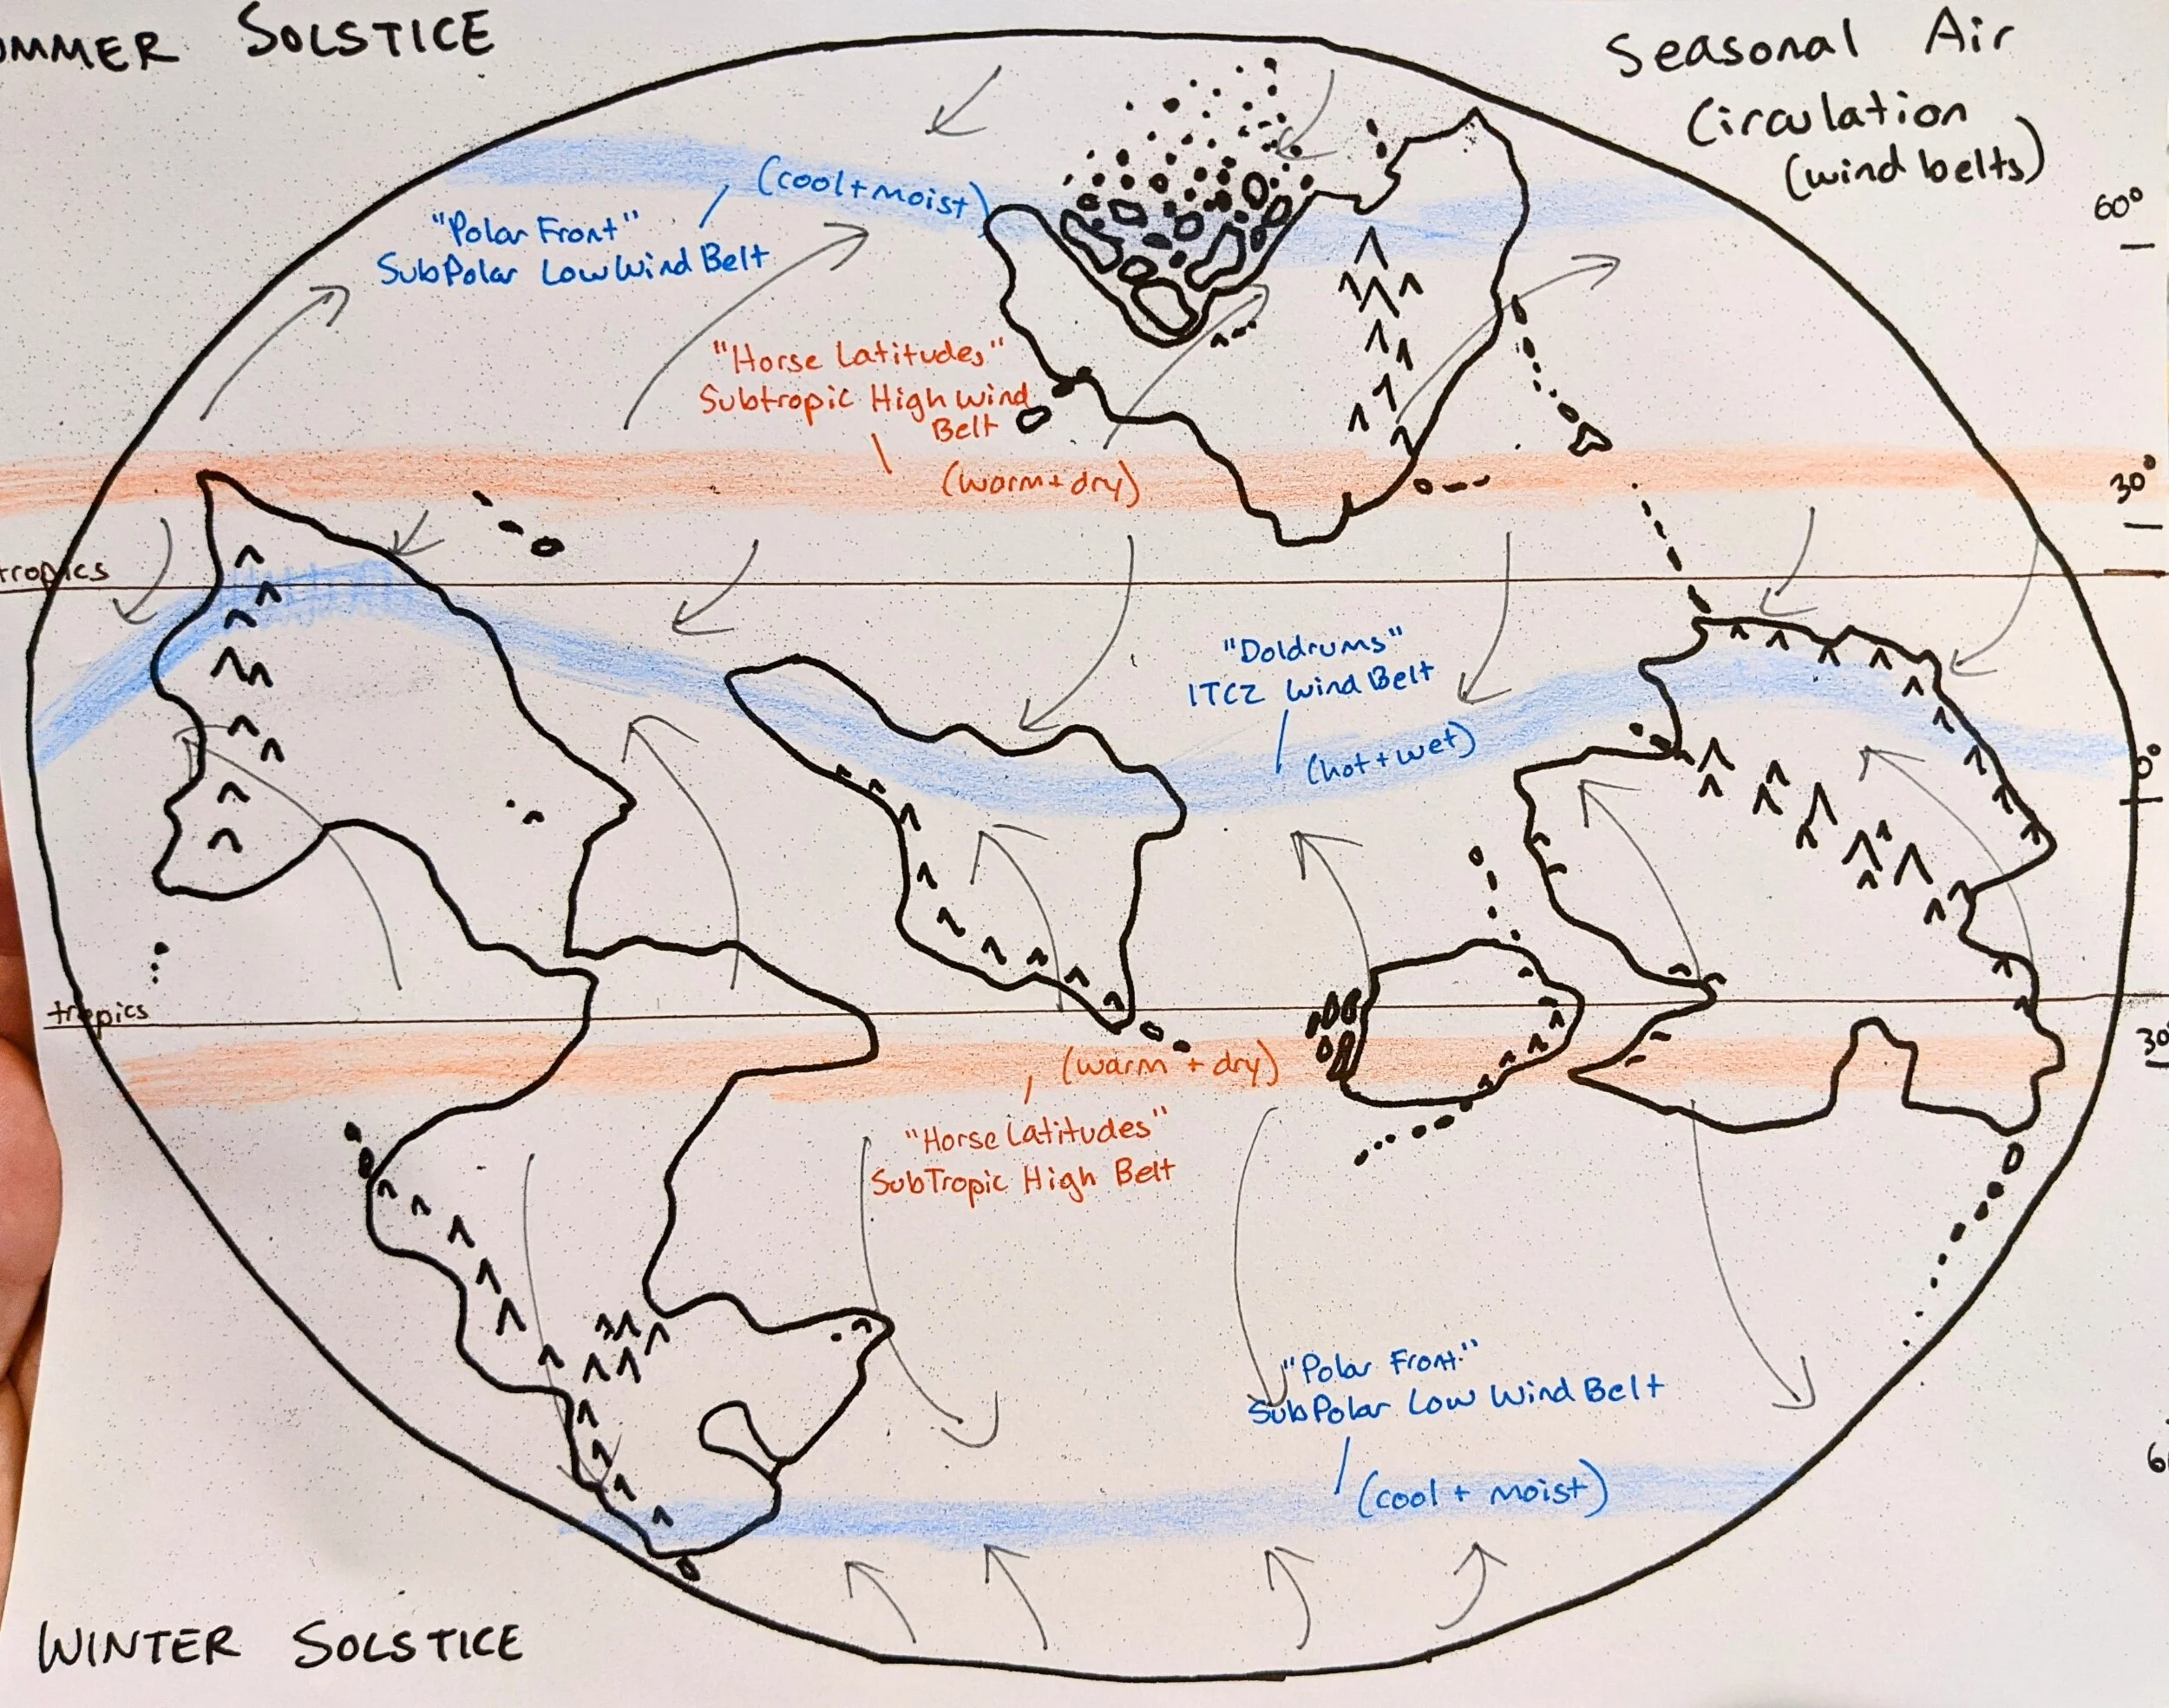 UMMER SOLSTICE
Seasonal Air
Circulation
(wind belts)
60°
(cool + moist)
"Polar Front"
SubPolar Low Wind Belt
"Horse Latitudes"
Subtropic High Wind
Belt
(warm + dry)
30°
tropics
"Doldrums"
ITCZ Wind Belt
(hot + wet)
0°
tropics
30
(warm + dry)
"Horse Latitudes"
SubTropic High Belt
"Polar Front"
SubPolar Low Wind Belt
(cool + moist)
6
WINTER SOLSTICE